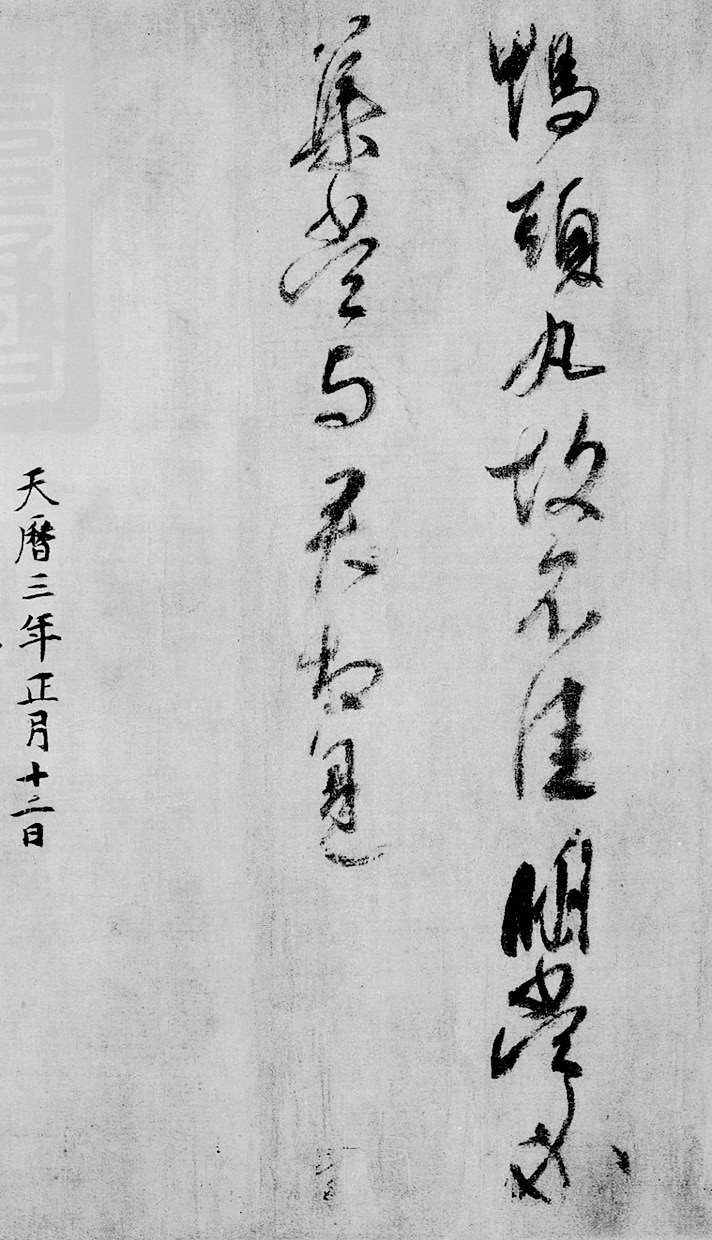 鴨頭丸故不佳明當必
集當与君相見
天曆三年正月十二日